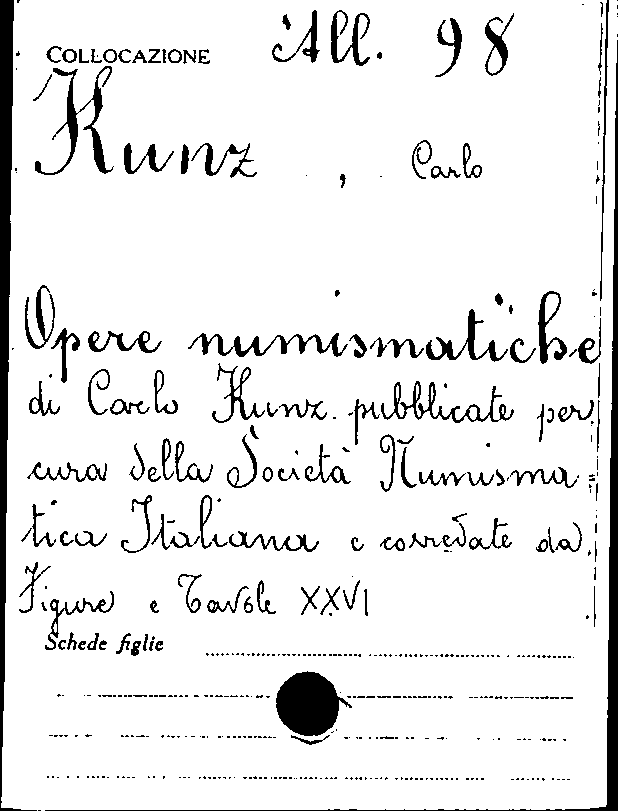 COLLOCAZIONE All. 98
Kunz, Carlo
Opere numismatiche
di Carlo Kunz. pubblicate per
cura della Società Numisma=
tica Italiana e corredate da
Figure e Tavole XXVI
Schede figlie